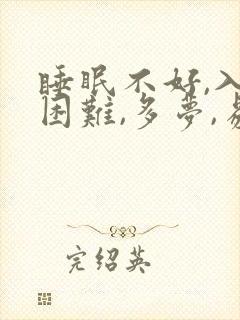 睡眠不好,入
困難,多夢,易
完绍英